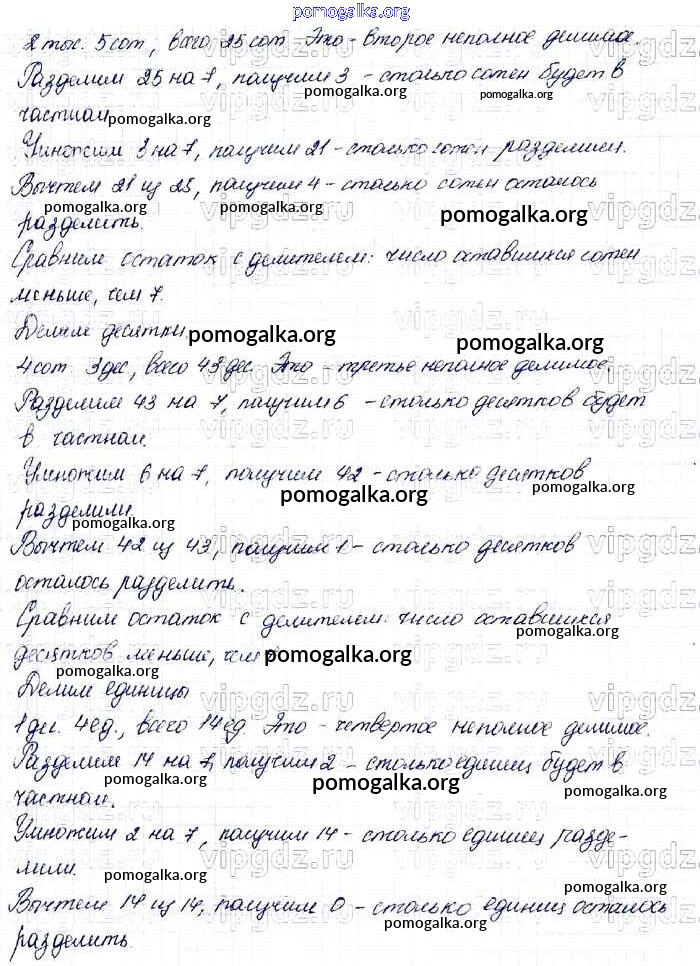 pomogalka.org
2 тыс. 5 сот, всего 25 сот. Это - второе неполное делимое.
Разделим 25 на 7, получим 3 - столько сотен будет в
pomogalka.org
частном.
pomogalka.org
Умножим 3 на 7, получим 21 - столько сотен разделили.
Вычтем 21 из 25, получим 4 - столько сотен осталось
pomogalka.org pomogalka.org
разделить.
Сравним остаток с делителем: число оставшихся сотен
меньше, чем 7.
Делим десятки
pomogalka.org pomogalka.org
4 сот. 3 дес, всего 43 дес. Это - третье неполное делимое.
Разделим 43 на 7, получим 6 - столько десятков будет
в частном.
Умножим 6 на 7, получим 42 - столько десятков
pomogalka.org pomogalka.org
разделили.
pomogalka.org
Вычтем 42 из 43, получим 1 - столько десятков
осталось разделить.
Сравним остаток с делителем: число оставшихся
pomogalka.org
десятков меньше, чем
pomogalka.org
Делим единицы
1 дес. 4 ед., всего 14 ед. Это - четвертое неполное делимое.
Разделим 14 на 7, получим 2 - столько единиц будет в
pomogalka.org pomogalka.org pomogalka.org
частном.
Умножим 2 на 7, получим 14 - столько единиц разде-
лили.
pomogalka.org pomogalka.org
Вычтем 14 из 14, получим 0 - столько единиц осталось
pomogalka.org
разделить.
vipgdz.ru